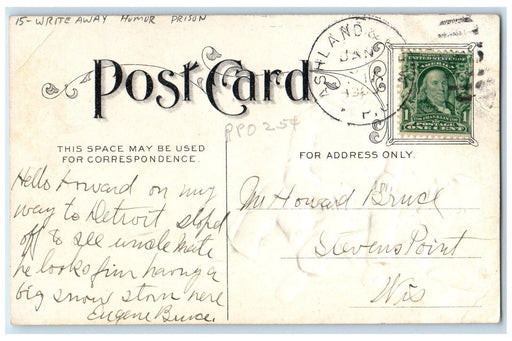 15- WRITE AWAY HUMOR PRISON
Post Card
ASHLAND &
JAN
R.P.O.
UNITED STATES OF AMERICA
1 1
POSTAGE
ONE CENT
RPO 25¢
THIS SPACE MAY BE USED
FOR CORRESPONDENCE.
FOR ADDRESS ONLY.
Hello Howard on my
way to Detroit stoped
off to see uncle
he looks fine having a
big snow storm here
Eugene Bruce.
Mr Howard Bruce
Stevens Point
Wis